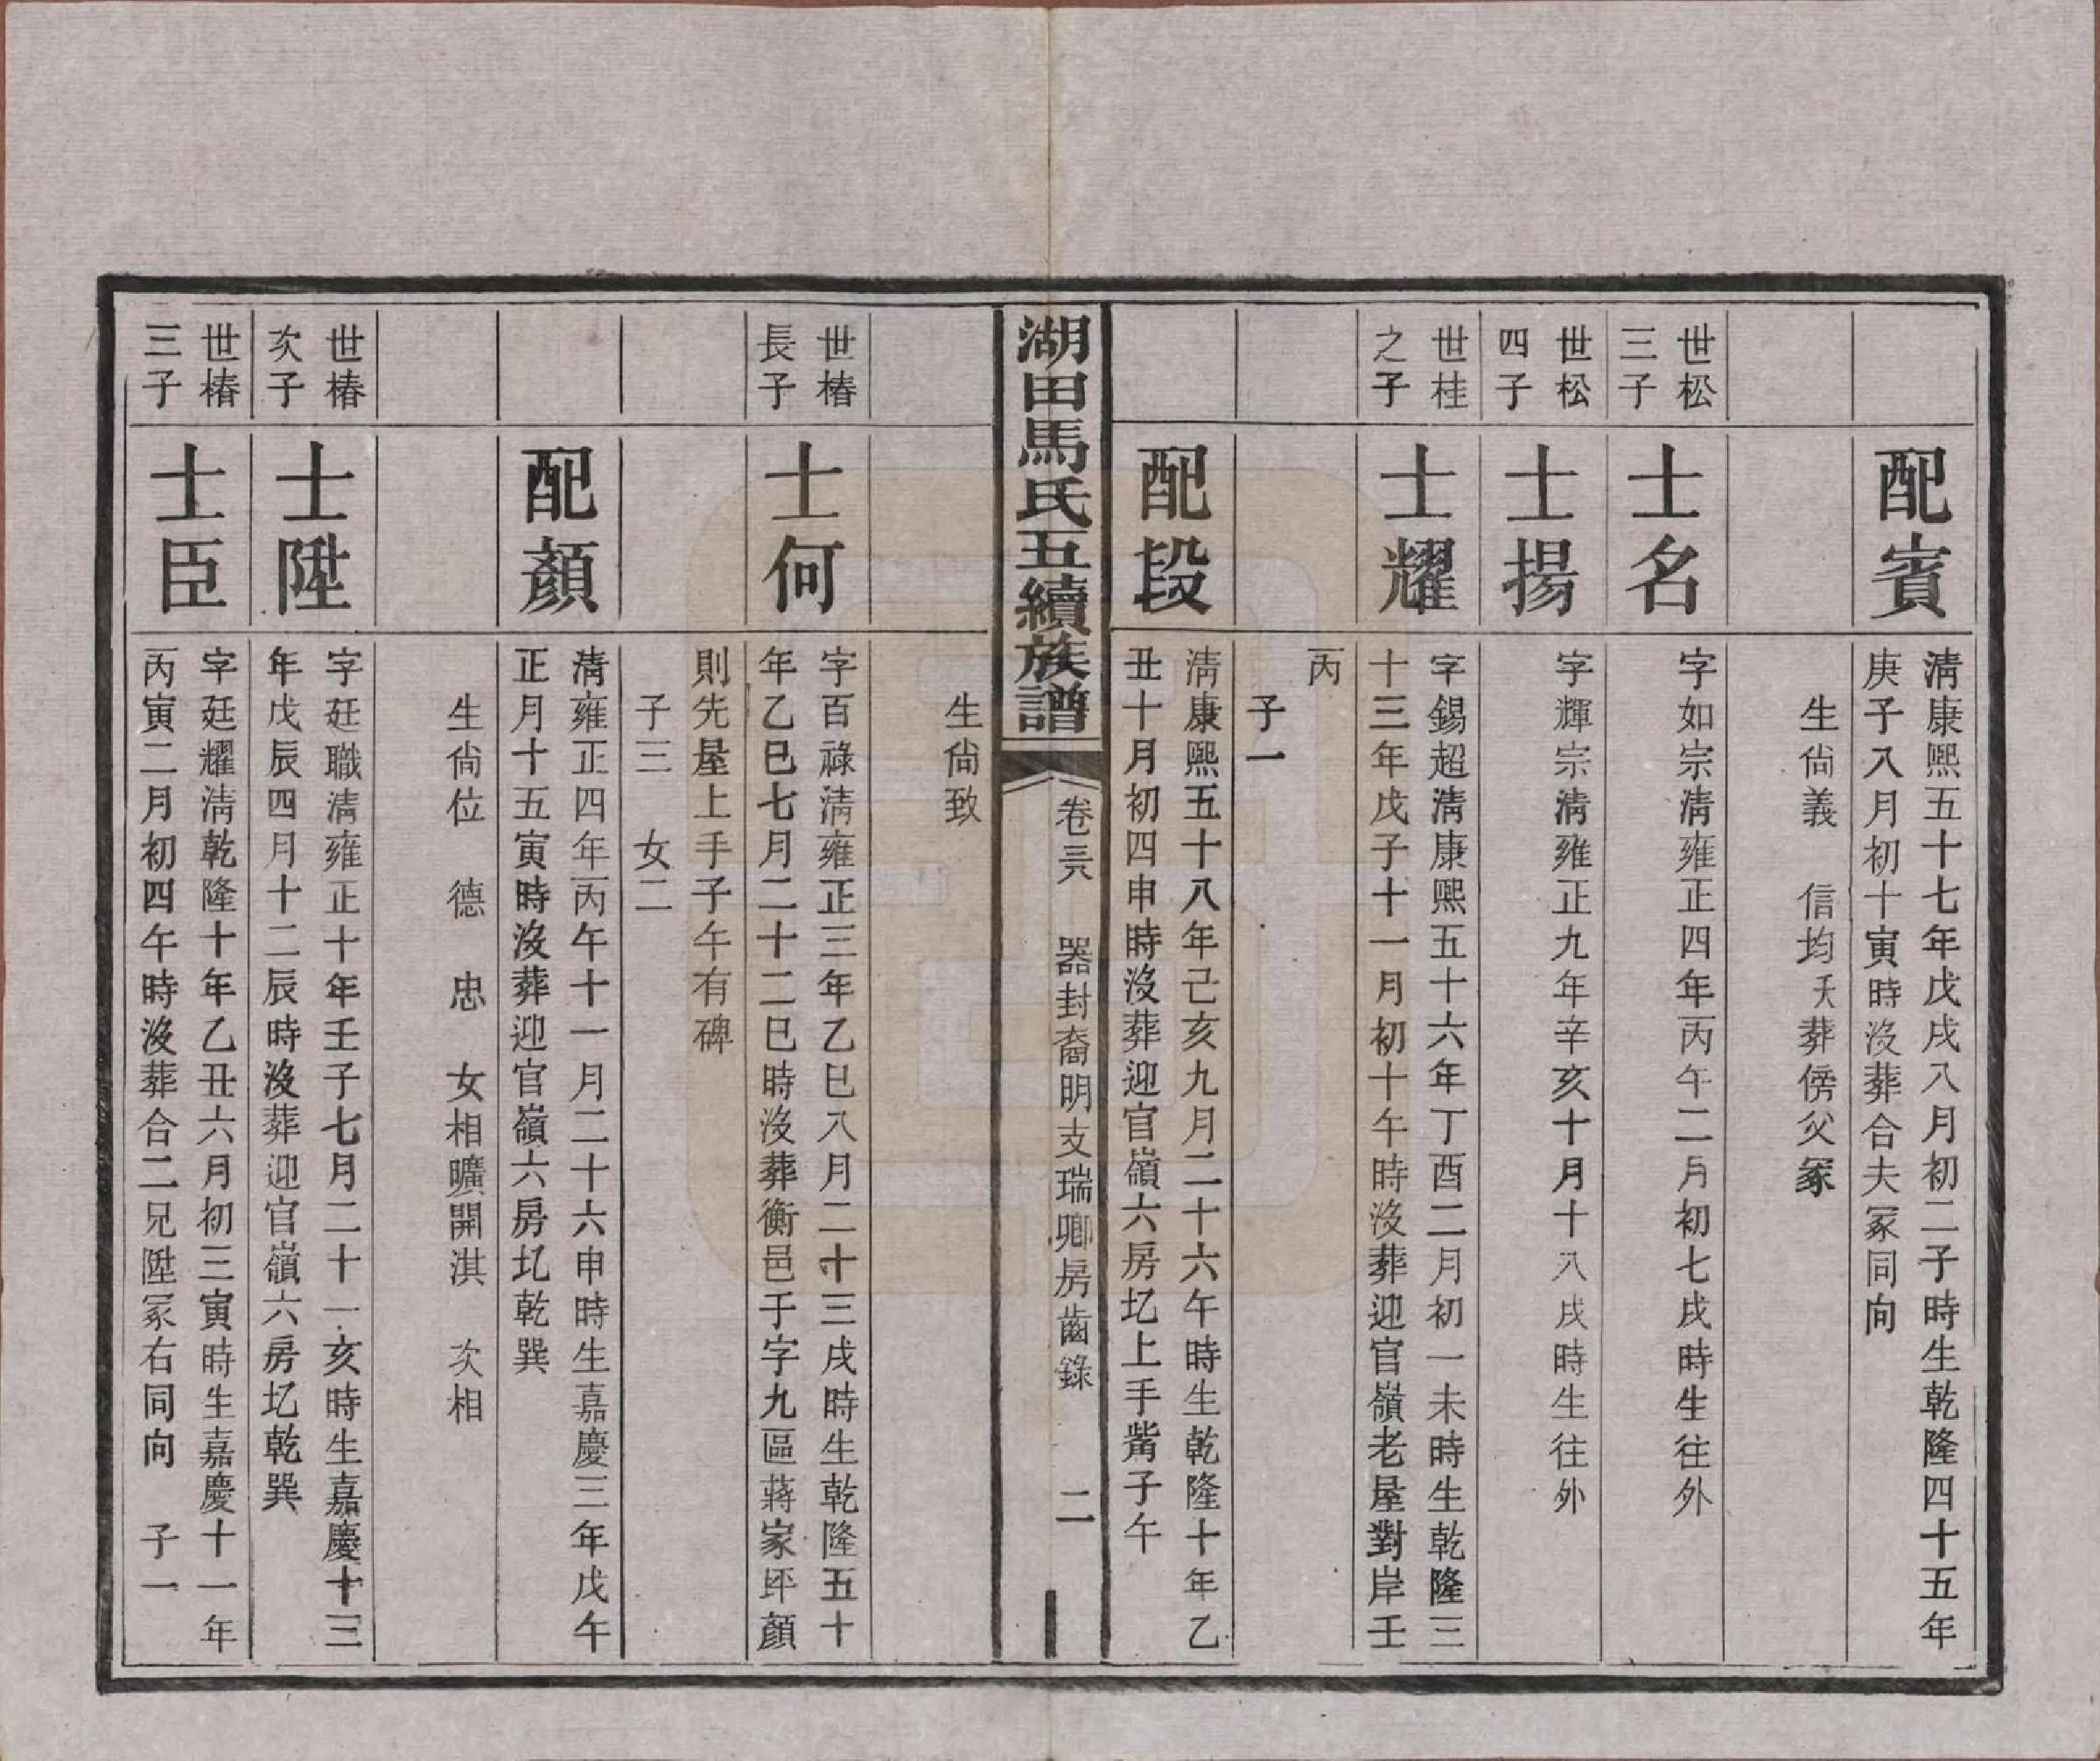 配賓
清康熙五十七年戊戌八月初二子時生乾隆四十五年
庚子八月初十寅時沒葬合夫冢同向
生尙義　信均夭葬傍父冢
世松
三子
士名
字如宗清雍正四年丙午二月初七戌時生往外
世松
四子
士揚
字輝宗清雍正九年辛亥十月十八戌時生往外
世桂
之子
士耀
字錫超清康熙五十六年丁酉二月初一未時生乾隆三
十三年戊子十一月初十午時沒葬迎官嶺老屋對岸壬
丙
子一
配段
清康熙五十八年己亥九月二十六午時生乾隆十年乙
丑十月初四申時沒葬迎官嶺六房圵上手觜子午
湖田馬氏五續族譜
卷三尺
器封裔明支瑞卿房齒錄
二
生尙致
世椿
長子
士何
字百祿清雍正三年乙巳八月二十三戌時生乾隆五十
年乙巳七月二十二巳時沒葬衡邑于字九區蔣家坪顏
則先屋上手子午有碑
子三　女二
配顏
清雍正四年丙午十一月二十六申時生嘉慶三年戊午
正月十五寅時沒葬迎官嶺六房圵乾巽
生尙位　德　忠　女相曠開淇　次相
世椿
次子
士陞
字廷職清雍正十年壬子七月二十一亥時生嘉慶十三
年戊辰四月十二辰時沒葬迎官嶺六房圵乾巽
世椿
三子
士臣
字廷耀清乾隆十年乙丑六月初三寅時生嘉慶十一年
丙寅二月初四午時沒葬合二兄陞冢右同向　子一